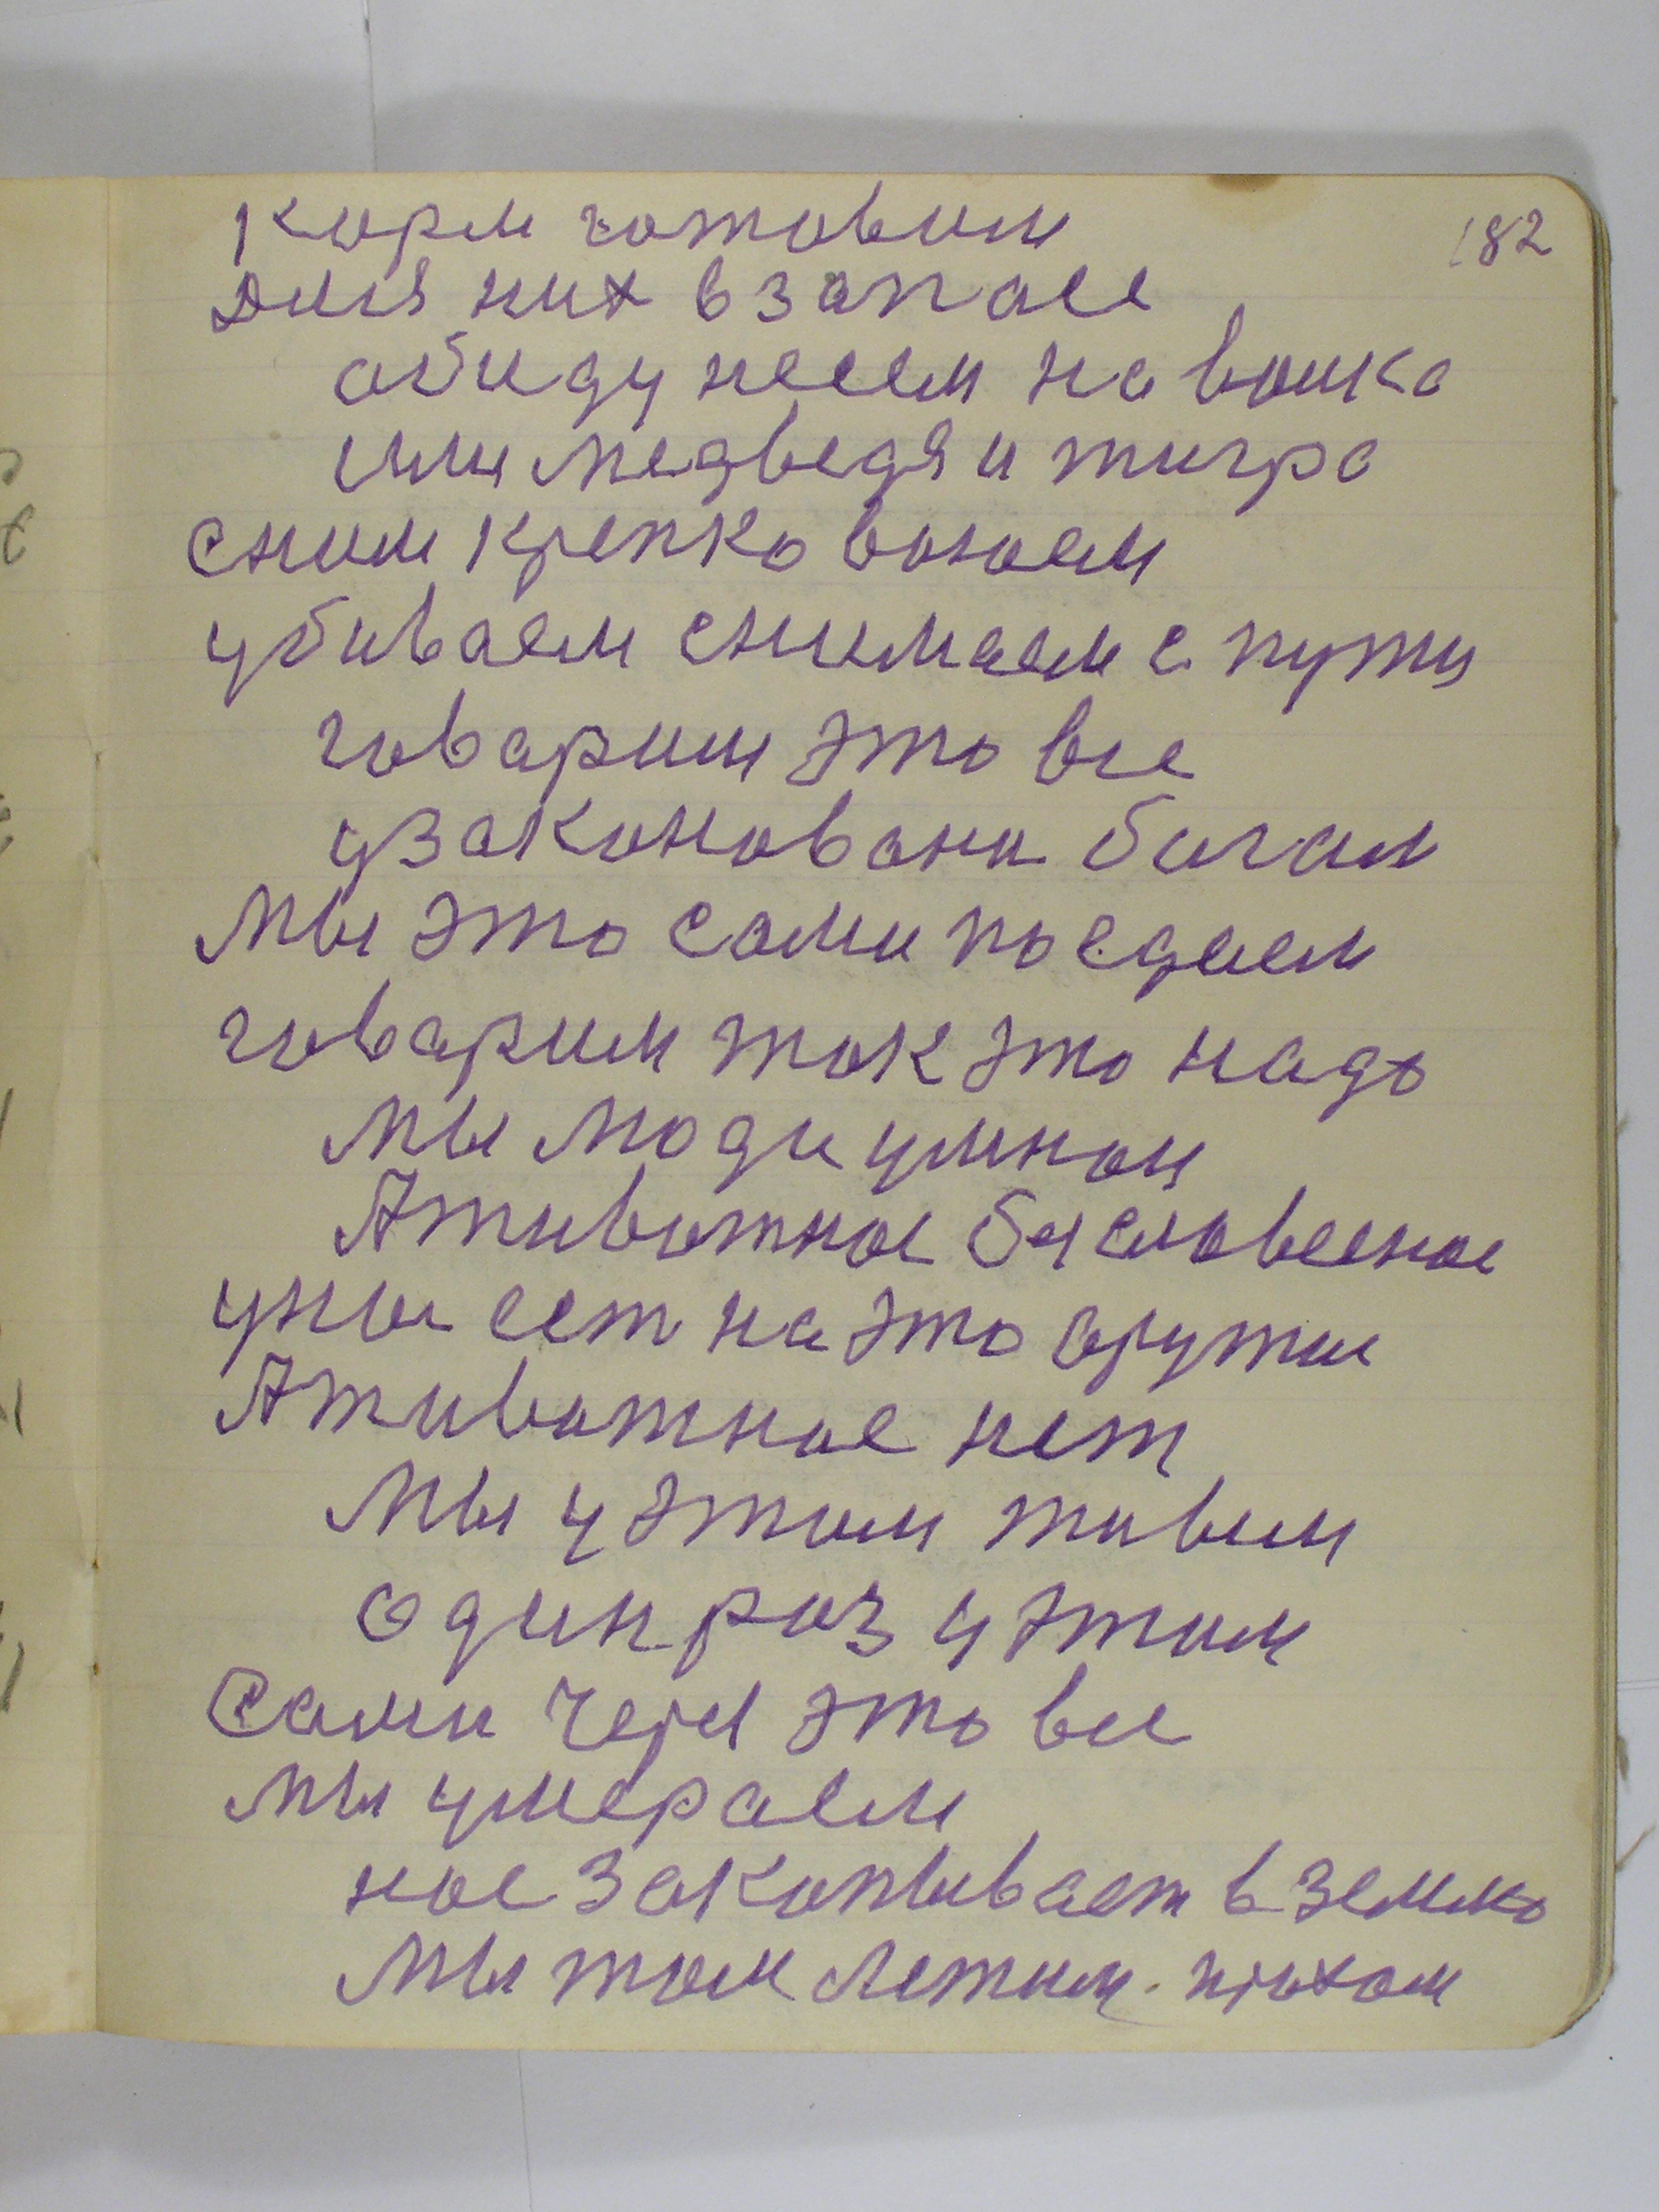 182
корм готовим
для них в запасе
обиду несем на волка
или медведя и тигра
сним крепко воюем
убиваем снимаем с пути
говарим это все
узаконовано богом
Мы это сами поедаем
говарим так это надо
мы люди умнаи
Аживотное бесловесное
унас ест на это аружие
Аживотное нет
Мы у этом живем
один раз у этим
Сами через это все
мы умераем
нас закапывает в землю
Мы там лежим прахом